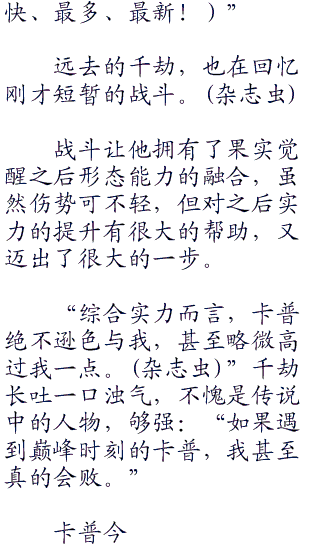 快、最多、最新！）”
远去的千劫，也在回忆
刚才短暂的战斗。(杂志虫)
战斗让他拥有了果实觉
醒之后形态能力的融合，虽
然伤势可不轻，但对之后实
力的提升有很大的帮助，又
迈出了很大的一步。
“综合实力而言，卡普
绝不逊色与我，甚至略微高
过我一点。(杂志虫)”千劫
长吐一口浊气，不愧是传说
中的人物，够强：“如果遇
到巅峰时刻的卡普，我甚至
真的会败。”
卡普今